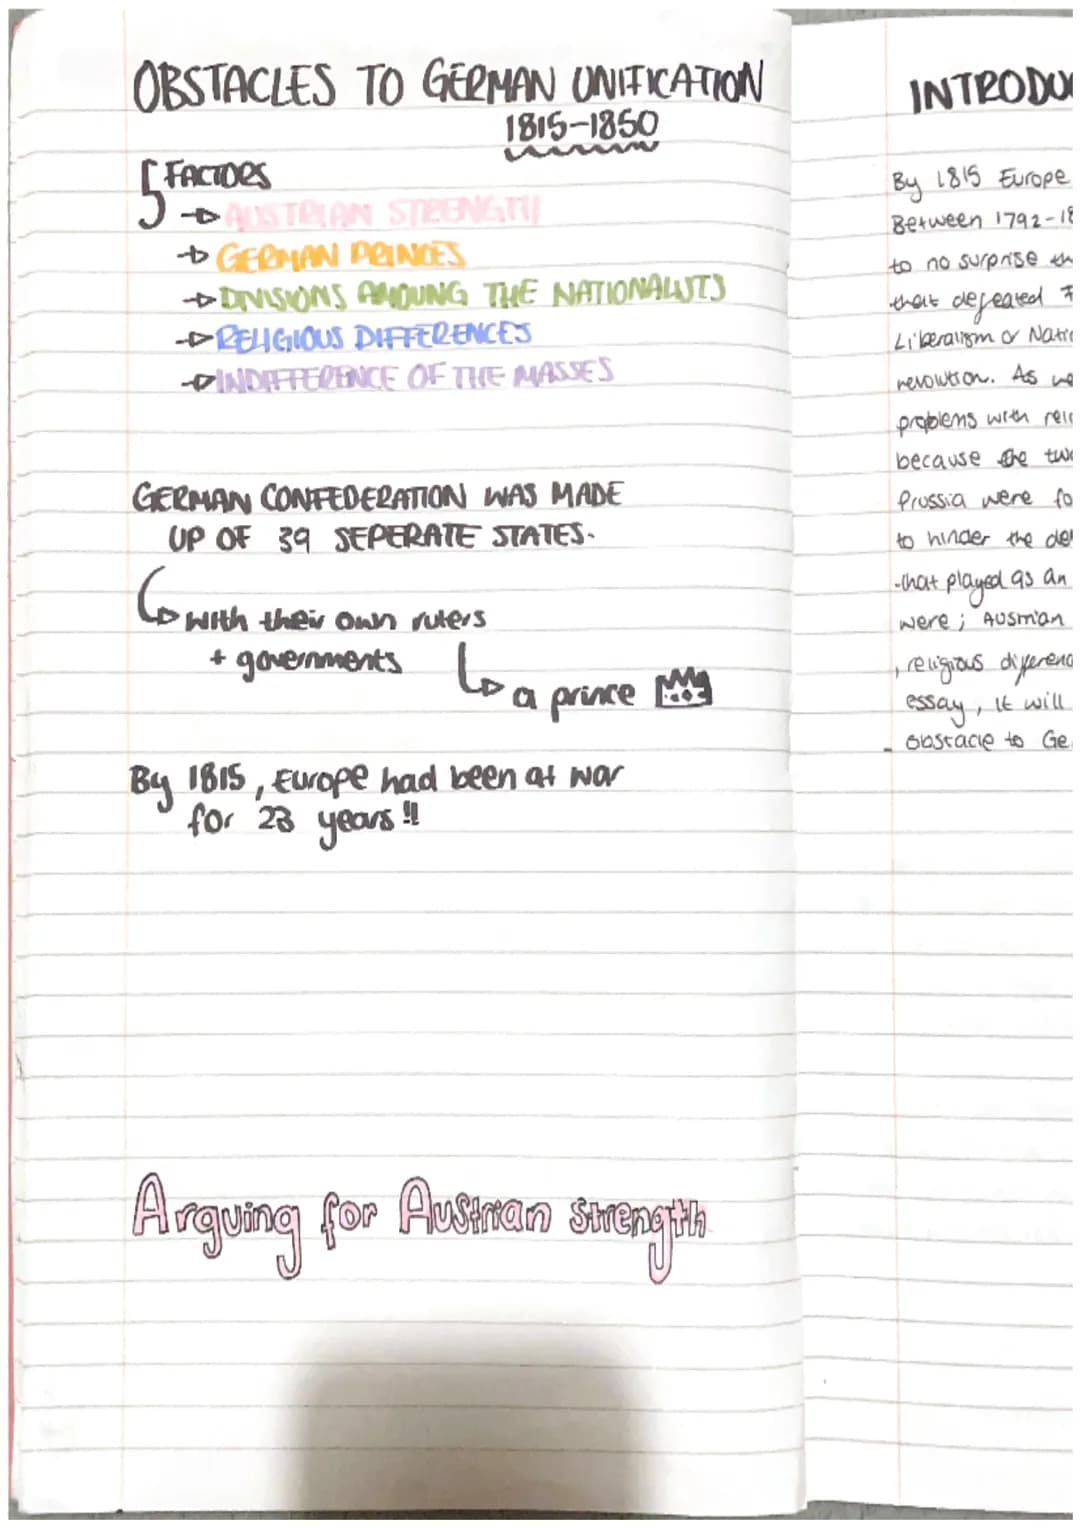 OBSTACLES TO GERMAN UNIFICATION
1815-1850
5 FACTORS
→ AUSTRIAN STRENGTH
→ GERMAN PRINCES
→ DIVISIONS AMOUNG THE NATIONALISTS
→ RELIGIOUS DIFFERENCES
→ INDIFFERENCE OF THE MASSES
GERMAN CONFEDERATION WAS MADE
UP OF 39 SEPERATE STATES.
→ with their own rulers
+ governments
→ a prince
By 1815, Europe had been at war
for 23 years!!
Arguing for Austrian strength
INTRODU
By 1815 Europe
Between 1792-18
to no surprise th
that defeated F
Liberalism or Natio
revolution. As we
problems with reli
because the two
Prussia were fo
to hinder the de
that played as an
were; Austrian
, religious differenc
essay, it will
obstacle to Ge